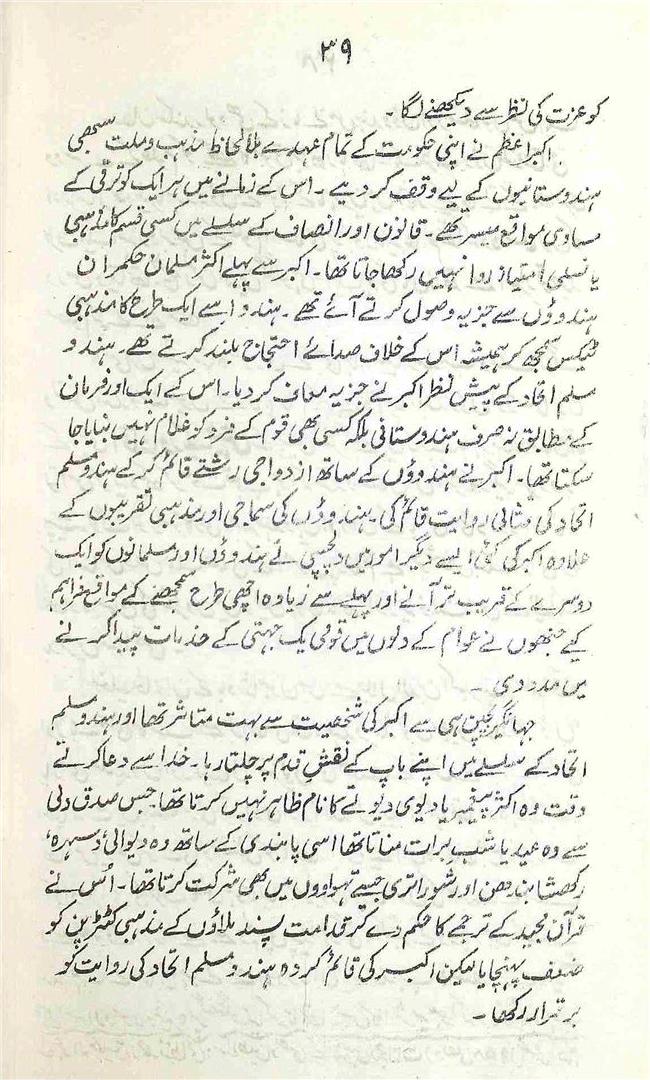 ۳۹
کو عزت کی نظر سے دیکھنے لگا۔
اکبر اعظم نے اپنی حکومت کے تمام عہدے بلا لحاظ مذہب و ملت سبھی
ہندوستانیوں کے لیے وقف کر دیے۔ اس کے زمانے میں ہر ایک کو ترقی کے
مساوی مواقع میسر تھے۔ قانون اور انصاف کے سلسلے میں کسی قسم کا مذہبی
یا نسلی امتیاز روا نہیں رکھا جاتا تھا۔ اکبر سے پہلے اکثر مسلمان حکمران
ہندوؤں سے جزیہ وصول کرتے آئے تھے۔ ہندو اسے ایک طرح کا مذہبی
ٹیکس سمجھ کر ہمیشہ اس کے خلاف صدائے احتجاج بلند کرتے تھے۔ ہندو
مسلم اتحاد کے پیش نظر اکبر نے جزیہ معاف کر دیا۔ اس کے ایک اور فرمان
کے مطابق نہ صرف ہندوستانی بلکہ کسی بھی قوم کے فرد کو غلام نہیں بنایا جا
سکتا تھا۔ اکبر نے ہندوؤں کے ساتھ ازدواجی رشتے قائم کر کے ہندو مسلم
اتحاد کی مثالی روایت قائم کی۔ ہندوؤں کی سماجی اور مذہبی تقریبوں کے
علاوہ اکبر کی کئی ایسے دیگر امور میں دلچسپی نے ہندوؤں اور مسلمانوں کو ایک
دوسرے کے قریب تر آنے اور پہلے سے زیادہ اچھی طرح سمجھنے کے مواقع فراہم
کیے جنھوں نے عوام کے دلوں میں قومی یک جہتی کے جذبات پیدا کرنے
میں مدد دی۔
جہانگیر بچپن ہی سے اکبر کی شخصیت سے بہت متاثر تھا اور ہندو مسلم
اتحاد کے سلسلے میں اپنے باپ کے نقش قدم پر چلتا رہا۔ خدا سے دعا کرتے
وقت وہ اکثر پیغمبر یا دیوی دیوتے کا نام ظاہر نہیں کرتا تھا۔ جس صدق دلی
سے وہ عید یا شب برات مناتا تھا اسی پابندی کے ساتھ وہ دیوالی، دسہرہ،
رکھشا بندھن اور شوراتری جیسے تہواروں میں بھی شرکت کرتا تھا۔ اُس نے
قرآن مجید کے ترجمے کا حکم دے کر قدامت پسند ملاؤں کے مذہبی کٹرپن کو
ضعف پہنچایا لیکن اکبر کی قائم کردہ ہندو مسلم اتحاد کی روایت کو
برقرار رکھا۔